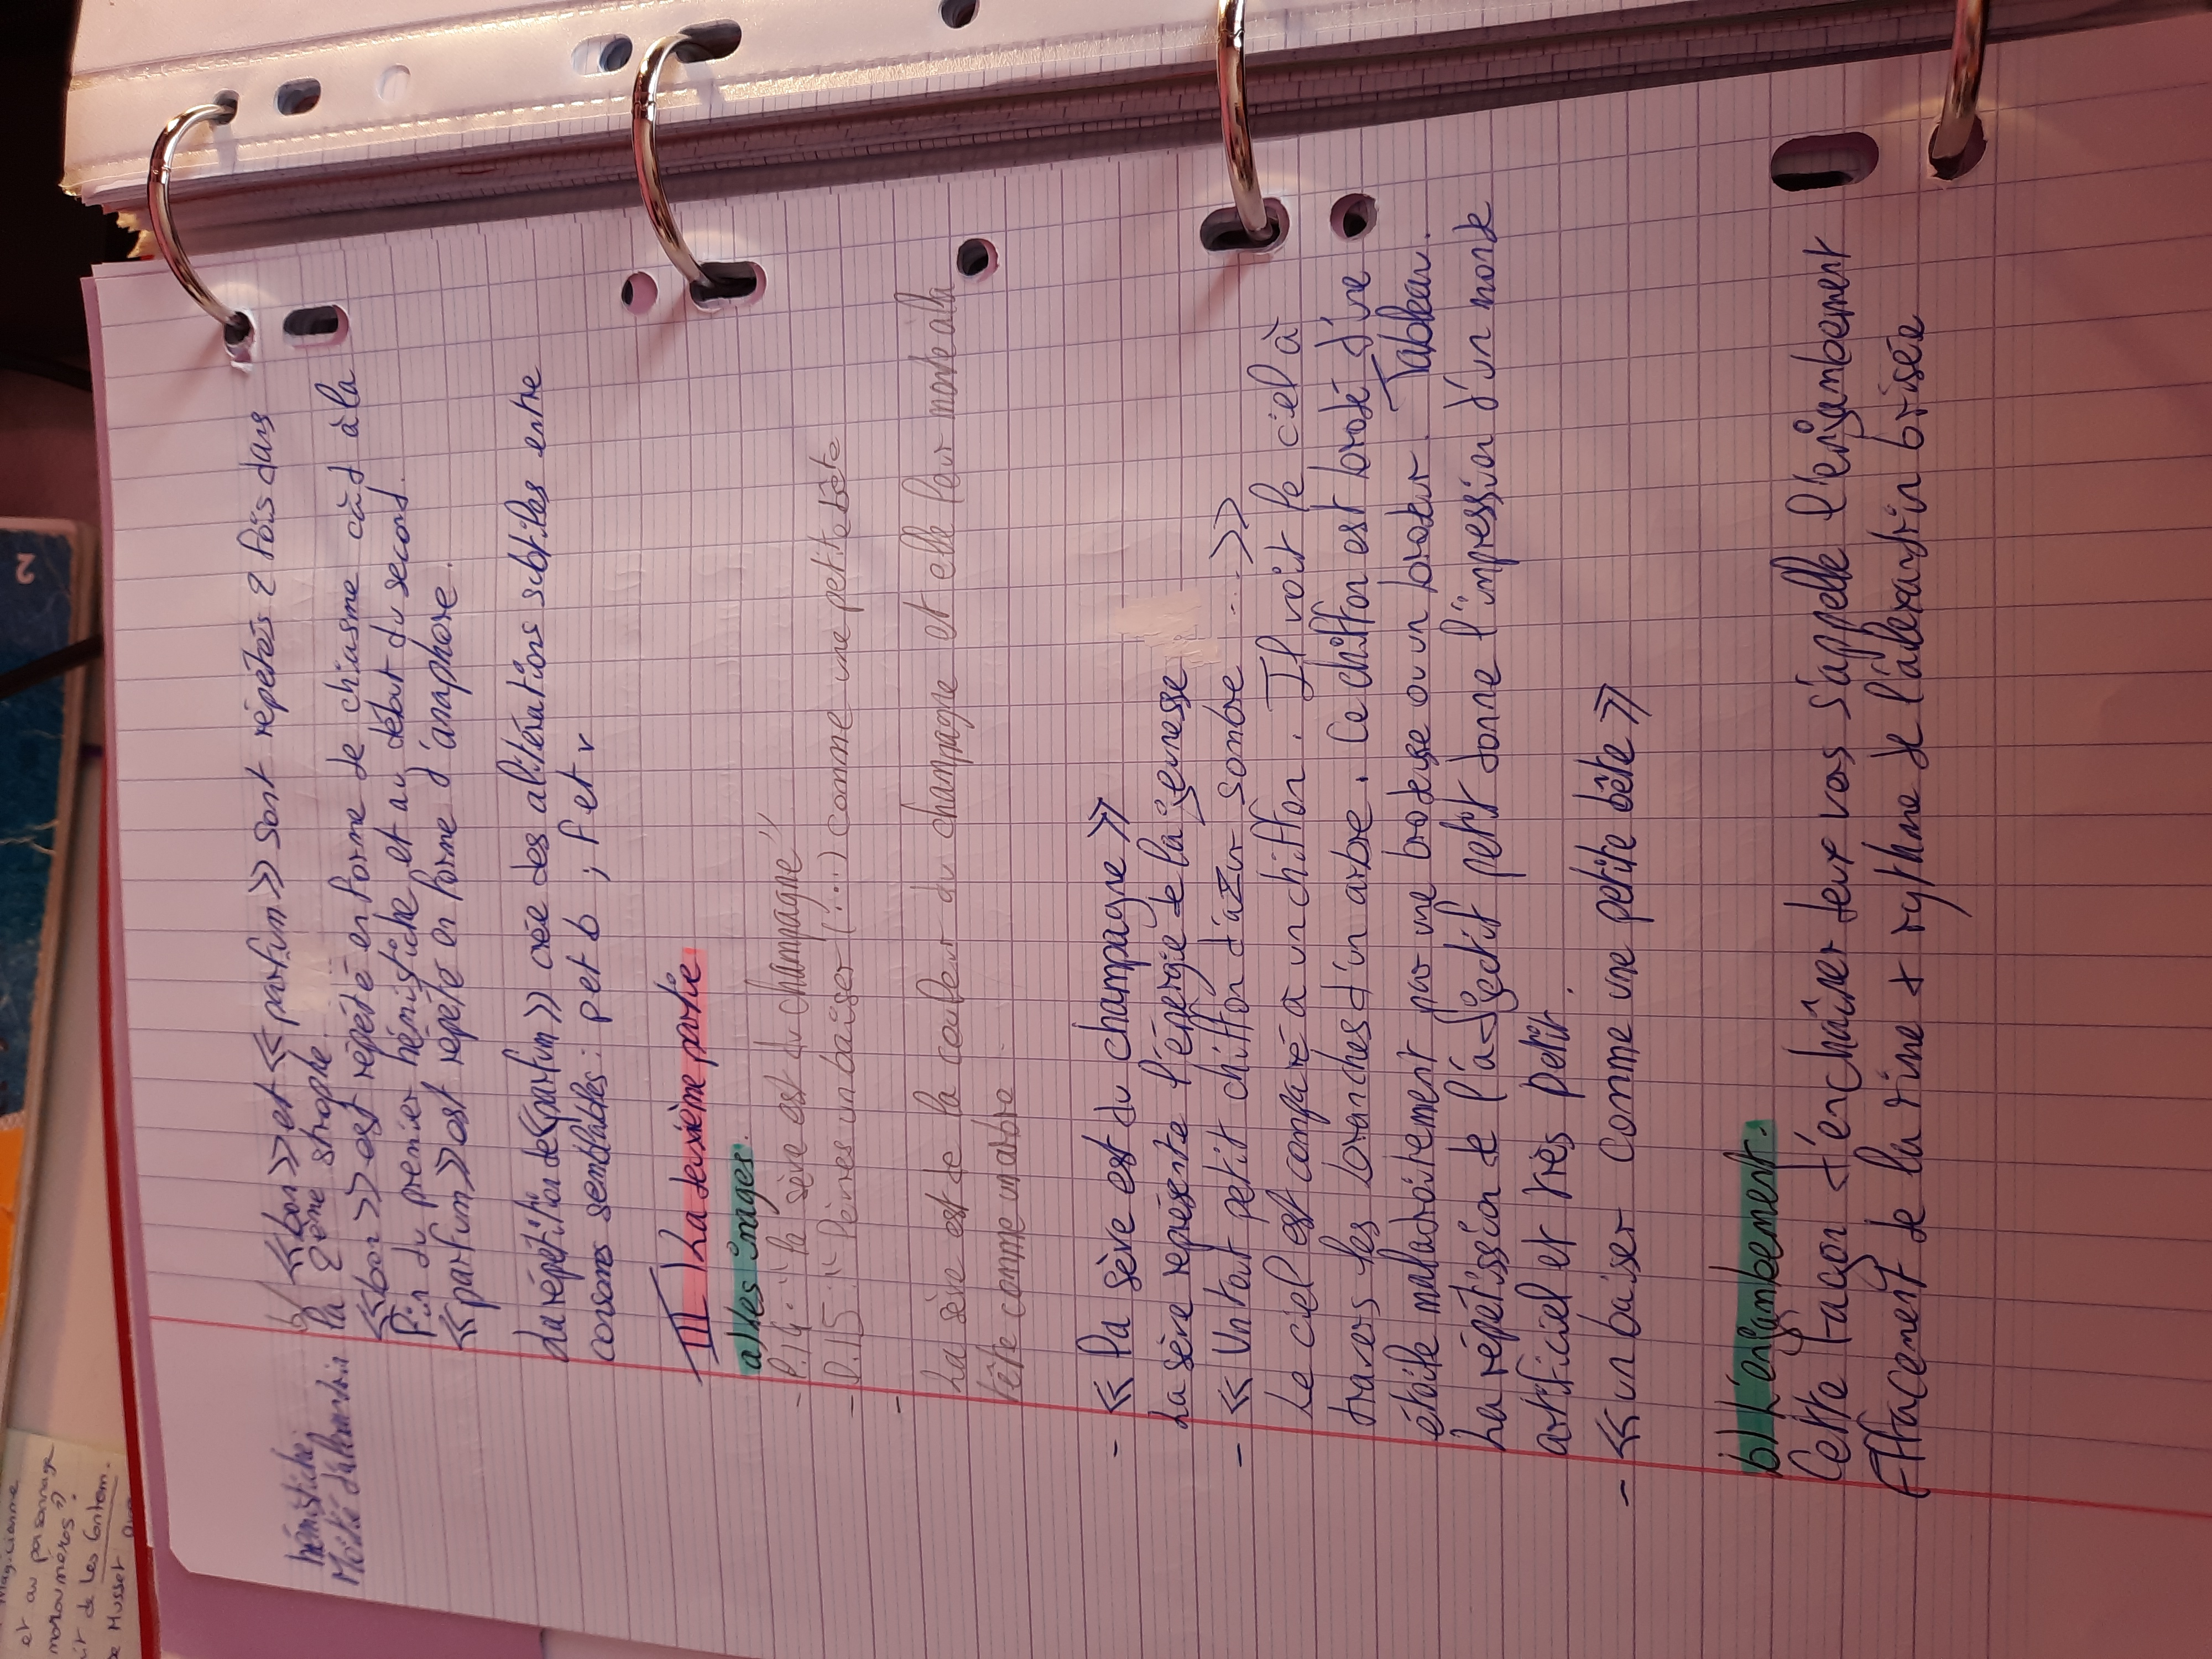 Magicienne
et au personnage
de Les Contem.
de Musset
2
hémistiche:
Moitié d'alexandrin
b/ «bon» et «parfum» sont répétés 2 fois dans
la 2ème strophe.
«bon» est répété en forme de chiasme càd à la
fin du premier hémistiche et au début du second.
«parfum» est répété en forme d'anaphore.
La répétition de «parfum» crée des alitérations subtiles entre
consones semblables: p et b ; f et v
III) La deuxième partie
a) Les images.
- l.14: "la sève est du champagne"
- l.15: "lèvres un baiser (...) comme une petite bête
-
La sève est de la couleur du champagne et elle leur monte à la
tête comme un arbre
- « la sève est du champagne »
La sève représente l'énergie de la jeunesse
- « Un tout petit chiffon d'azur sombre ... »
Le ciel est comparé à un chiffon. Il voit le ciel à
travers les branches d'un arbre. Ce chiffon est brodé d'une
étoile maladroitement par une brodeuse ou un brodeur. Tableau.
La répétission de l'adjectif petit donne l'impression d'un monde
artificiel et très petit.
- « un baiser comme une petite bête »
b) L'enjambement.
Cette façon d'enchaîner deux vers s'appelle l'enjambement
Effacement de la rime + rythme de l'alexandrin brisée